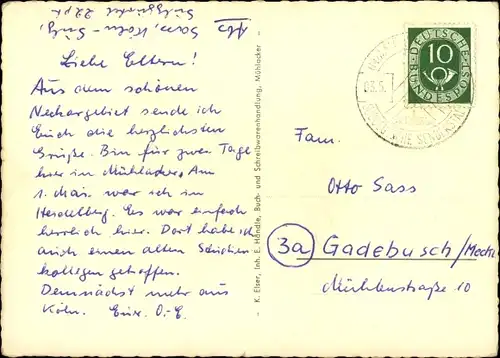 Liebe Eltern!
Aus dem schönen
Neckargebiet sende ich
Euch die herzlichsten
Grüße. Bin für zwei Tage
hier in Mühlacker. Am
1. Mai war ich in
Heidelberg. Es war einfach
herrlich hier. Dort habe ich
auch einen alten
kollegen getroffen.
Demnächst mehr aus
Köln. Eure O.-E.
Abs.
Sass, Köln-
K. Elser, Inh. E. Händle, Buch- und Schreibwarenhandlung, Mühlacker
DEUTSCHE BUNDESPOST
10
Fam.
Otto Sass
3a Gadebusch/Meckl
Mühlenstraße 10